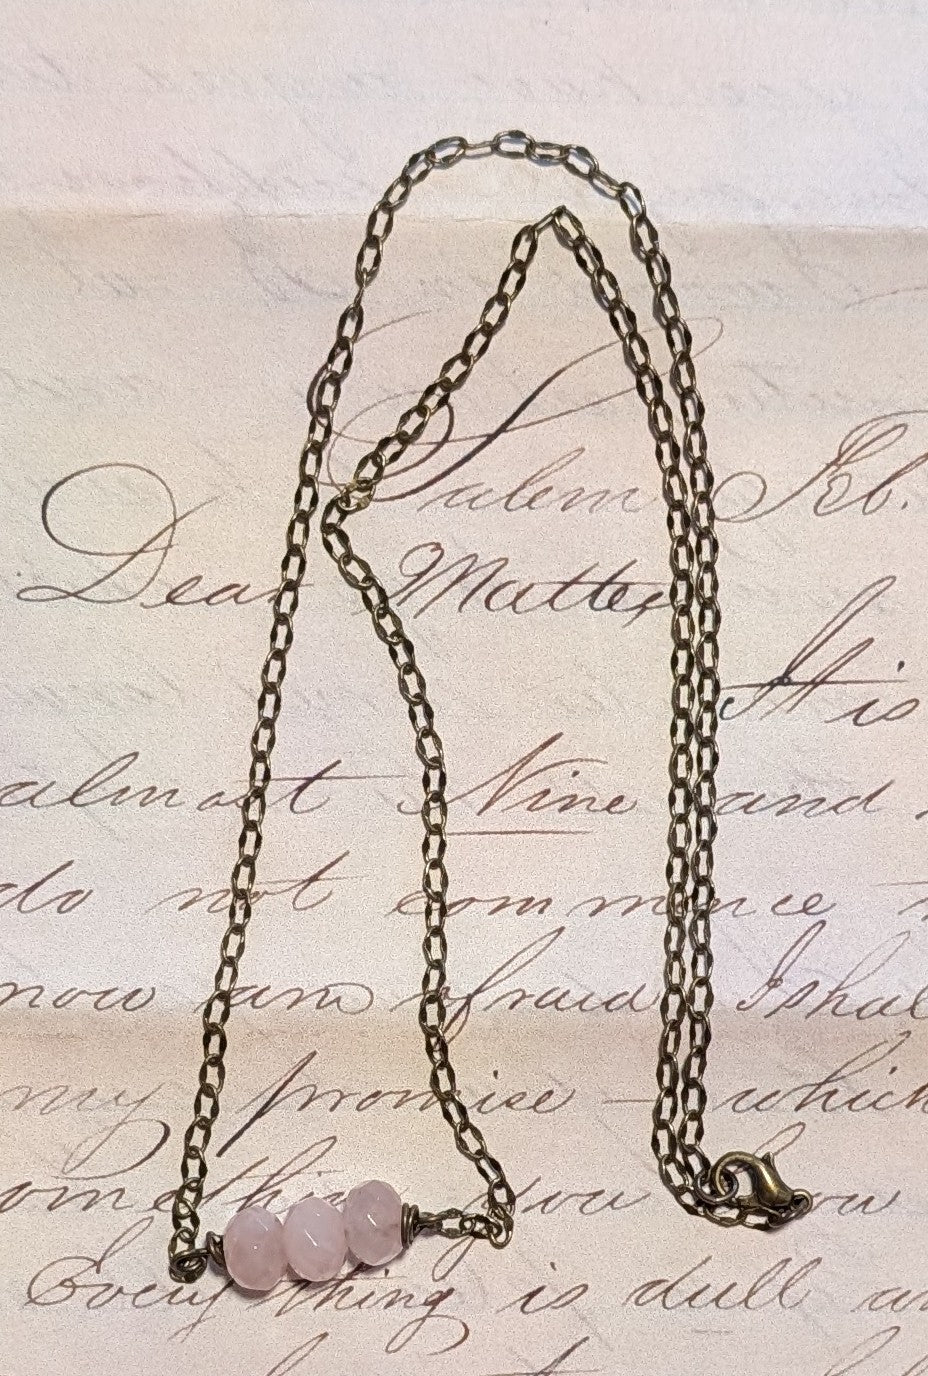 Salem Feb.
Dear Mattie
It is
almost Nine and
do not commence
now am afraid I shal
my promise — which
omething you now
Everything is dull an